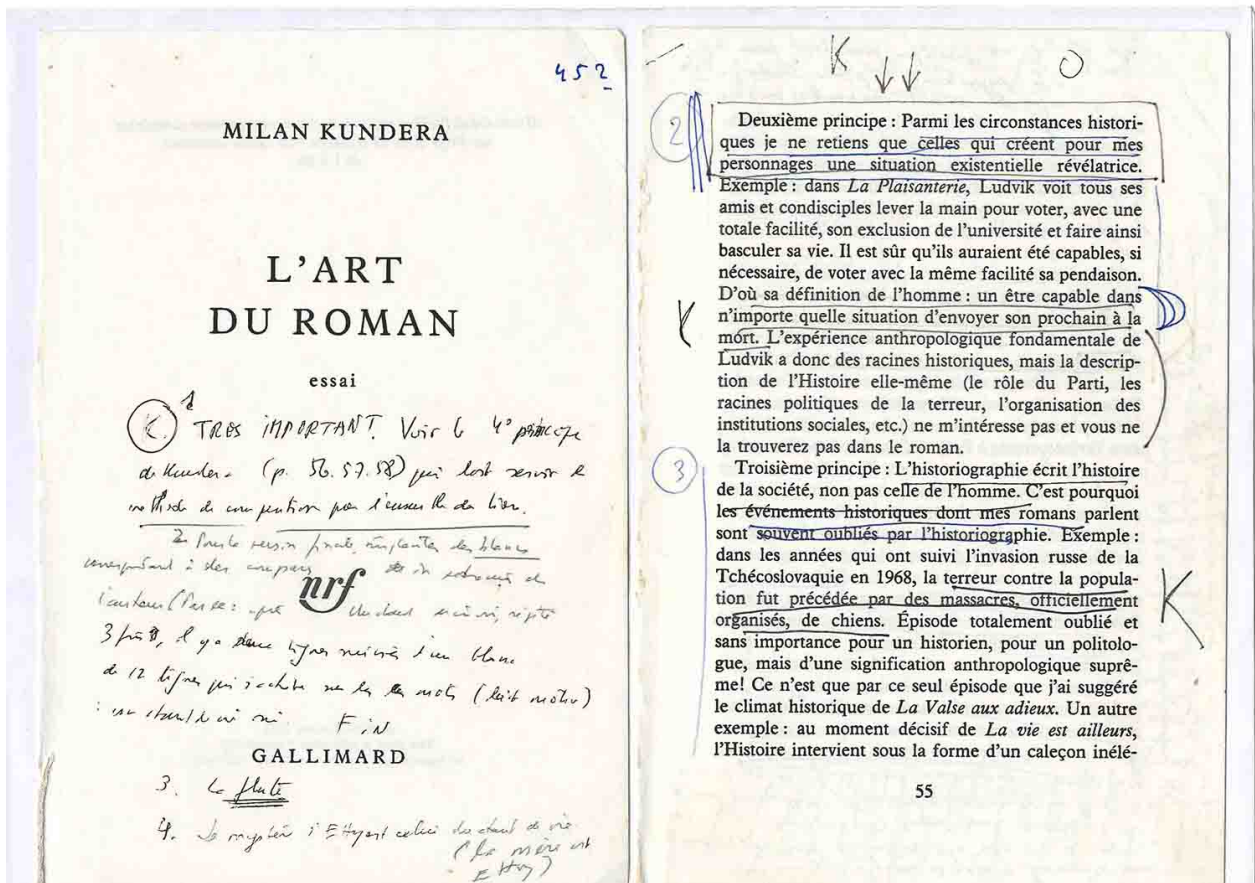 452
MILAN KUNDERA
L'ART
DU ROMAN
essai
1
K. TRES IMPORTANT. Voir le 4° principe
de Kundera (p. 56.57.58) qui doit servir de
méthode de composition pour l'ensemble du livre.
2 Pour la version finale, implanter des blancs
correspondant à des
nrf
l'auteur
3 fois, il y a
de 12 lignes qui s'achète sur les mots (leit motiv)
FiN
GALLIMARD
3. La flute
4. Le mystère d'
(La mère est
K
O
2
Deuxième principe : Parmi les circonstances histori-
ques je ne retiens que celles qui créent pour mes
personnages une situation existentielle révélatrice.
Exemple : dans La Plaisanterie, Ludvik voit tous ses
amis et condisciples lever la main pour voter, avec une
totale facilité, son exclusion de l'université et faire ainsi
basculer sa vie. Il est sûr qu'ils auraient été capables, si
nécessaire, de voter avec la même facilité sa pendaison.
D'où sa définition de l'homme : un être capable dans
n'importe quelle situation d'envoyer son prochain à la
K
mort. L'expérience anthropologique fondamentale de
Ludvik a donc des racines historiques, mais la descrip-
tion de l'Histoire elle-même (le rôle du Parti, les
racines politiques de la terreur, l'organisation des
institutions sociales, etc.) ne m'intéresse pas et vous ne
la trouverez pas dans le roman.
3
Troisième principe : L'historiographie écrit l'histoire
de la société, non pas celle de l'homme. C'est pourquoi
les événements historiques dont mes romans parlent
sont souvent oubliés par l'historiographie. Exemple :
dans les années qui ont suivi l'invasion russe de la
Tchécoslovaquie en 1968, la terreur contre la popula-
tion fut précédée par des massacres, officiellement
K
organisés, de chiens. Épisode totalement oublié et
sans importance pour un historien, pour un politolo-
gue, mais d'une signification anthropologique suprê-
me! Ce n'est que par ce seul épisode que j'ai suggéré
le climat historique de La Valse aux adieux. Un autre
exemple : au moment décisif de La vie est ailleurs,
l'Histoire intervient sous la forme d'un caleçon inélé-
55